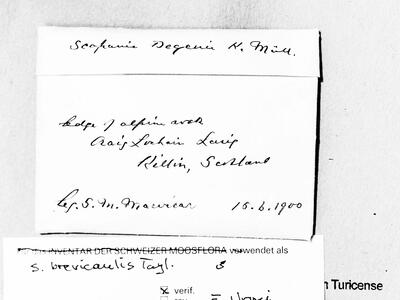 Scapania Degenii K. Müll.
Ledge of alpine rock
Craig Lochain Lairig
Killin, Scotland
leg. S. M. Macvicar 15.6.1900
INVENTAR DER SCHWEIZER MOOSFLORA verwendet als
S. brevicaulis Tayl. 3
verif.
Turicense